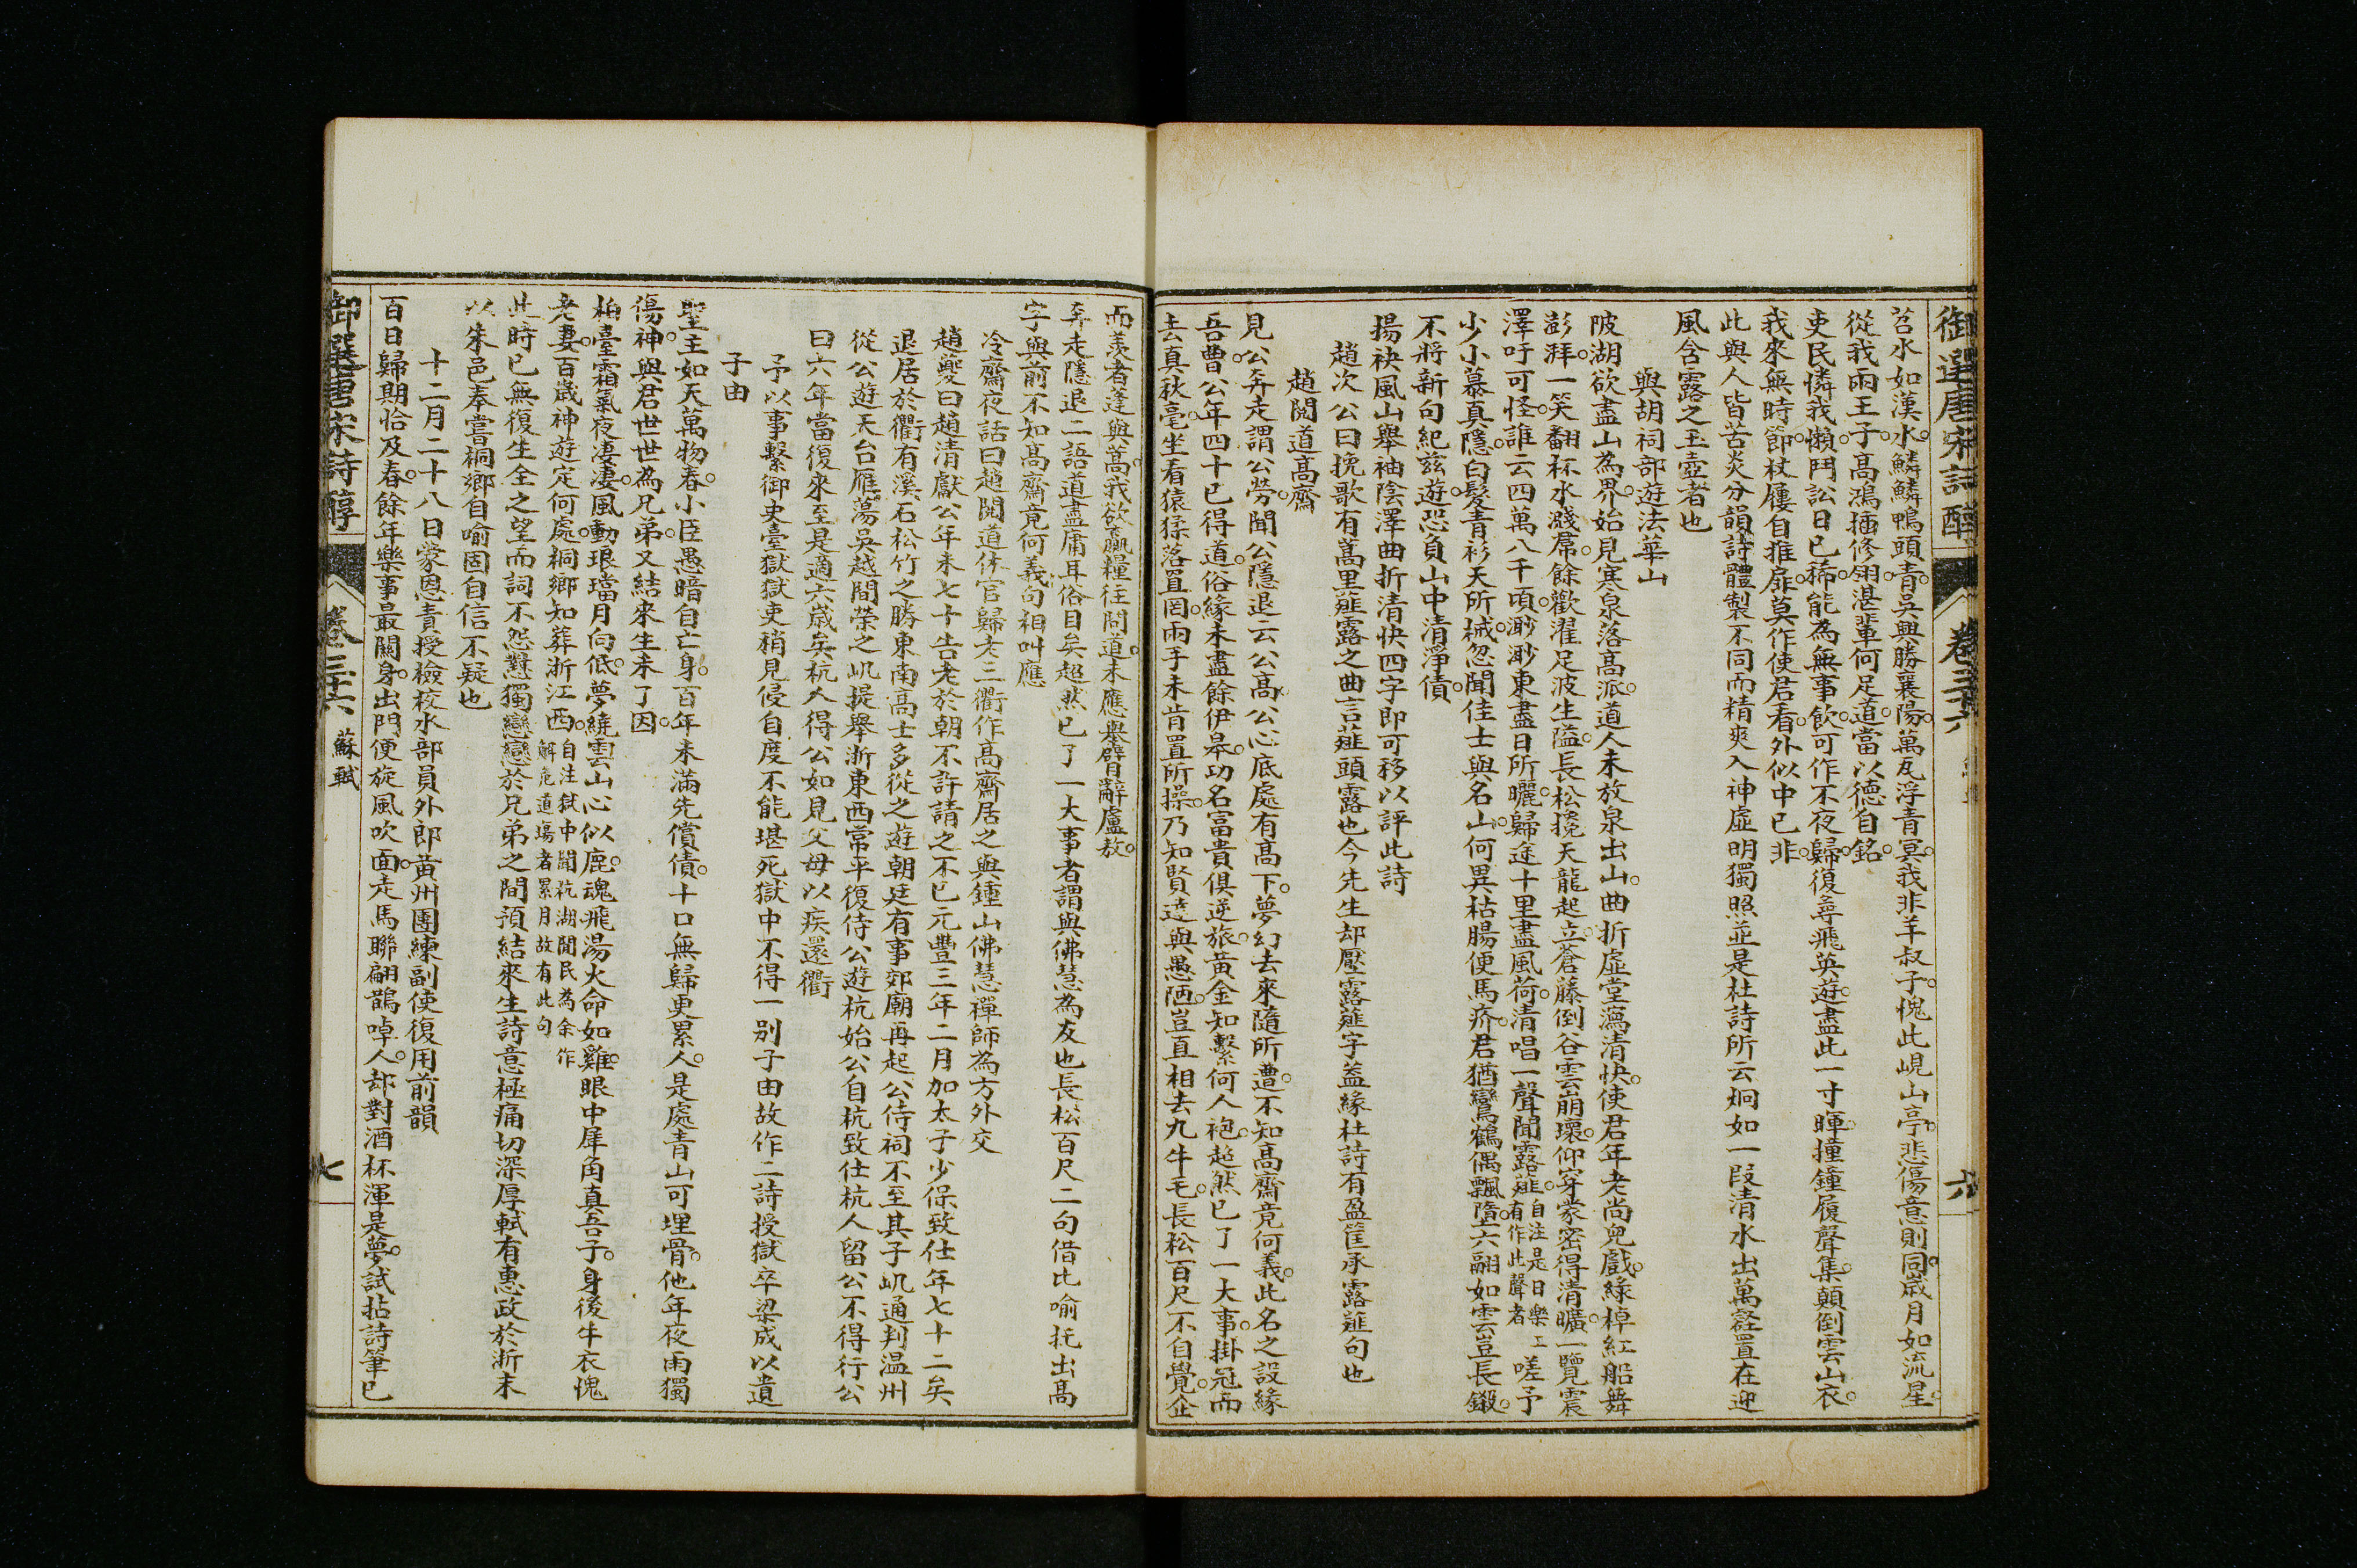 御選唐宋詩醇 卷三十六 六
苕水如漢水。鱗鱗鴨頭青。吳興勝襄陽。萬瓦浮青冥。我非羊叔子。愧此峴山亭。悲傷意則同。歲月如流星。
從我兩王子。高鴻插修翎。湛輩何足道。當以德自銘。
吏民憐我懶。鬥訟日已稀。能為無事飲。可作不夜歸。復尋飛英遊。盡此一寸暉。撞鐘履聲集。顛倒雲山衣。
我來無時節。杖屨自推扉。莫作使君看。外似中已非。
此與人皆苦炎分韻詩體製不同而精爽入神虛明獨照並是杜詩所云炯如一段清水出萬壑置在迎
風含露之玉壺者也
與胡祠部遊法華山
陂湖欲盡山為界。始見寒泉落高派。道人未放泉出山。曲折虛堂瀉清快。使君年老尚兒戲。綠棹紅船舞
澎湃。一笑翻杯水濺帬。餘歡濯足波生隘。長松攙天龍起立。蒼藤倒谷雲崩壞。仰穿蒙密得清曠。一覽震
澤吁可怪。誰云四萬八千頃。渺渺東盡日所曬。歸途十里盡風荷。清唱一聲聞露薤。自注是日樂工有作此聲者 嗟予
少小慕真隱。白髮青衫天所械。忽聞佳士與名山。何異枯腸便馬疥。君猶鸞鶴偶飄墮。六翮如雲豈長鎩。
不將新句紀茲遊。恐負山中清淨債。
揚袂風山舉袖陰澤曲折清快四字即可移以評此詩
趙次公曰挽歌有蒿里薤露之曲言薤頭露也今先生却壓露薤字蓋緣杜詩有盈筐承露薤句也
趙閱道高齋
見公奔走謂公勞。聞公隱退云公高。公心底處有高下。夢幻去來隨所遭。不知高齋竟何義。此名之設緣
吾曹。公年四十已得道。俗緣未盡餘伊皋。功名富貴俱逆旅。黃金知繫何人袍。超然已了一大事。掛冠而
去真秋毫。坐看猿猱落罝罔。兩手未肯置所操。乃知賢達與愚陋。豈直相去九牛毛。長松百尺不自覺。企
而羨者蓬與蒿。我欲贏糧往問道。未應舉臂辭盧敖。
奔走隱退二語道盡庸耳俗目矣超然已了一大事者謂與佛慧為友也長松百尺二句借比喻托出高
字與前不知高齋竟何義句相叫應
冷齋夜話曰趙閱道休官歸老三衢作高齋居之與鍾山佛慧禪師為方外交
趙夔曰趙清獻公年未七十告老於朝不許請之不已元豐三年二月加太子少保致仕年七十二矣
退居於衢有溪石松竹之勝東南高士多從之遊朝廷有事郊廟再起公侍祠不至其子屼通判溫州
從公遊天台雁蕩吳越間榮之屼提舉浙東西常平復侍公遊杭始公自杭致仕杭人留公不得行公
曰六年當復來至是適六歲矣杭人得公如見父母以疾還衢
予以事繫御史臺獄獄吏稍見侵自度不能堪死獄中不得一别子由故作二詩授獄卒梁成以遺
子由
聖主如天萬物春。小臣愚暗自亡身。百年未滿先償債。十口無歸更累人。是處青山可埋骨。他年夜雨獨
傷神。與君世世為兄弟。又結來生未了因。
柏臺霜氣夜凄凄。風動琅璫月向低。夢繞雲山心似鹿。魂飛湯火命如雞。眼中犀角真吾子。身後牛衣愧
老妻。百歲神遊定何處。桐鄉知葬浙江西。自注獄中聞杭湖間民為余作解危道場者累月故有此句
此時已無復生全之望而詞不怨懟獨戀戀於兄弟之間預結來生詩意極痛切深厚軾有惠政於浙末
以朱邑奉嘗桐鄉自喻固自信不疑也
十二月二十八日蒙恩責授檢校水部員外郎黃州團練副使復用前韻
百日歸期恰及春。餘年樂事最關身。出門便旋風吹面。走馬聯翩鵲啅人。却對酒杯渾是夢。試拈詩筆已
御選唐宋詩醇 卷三十六 蘇軾 七